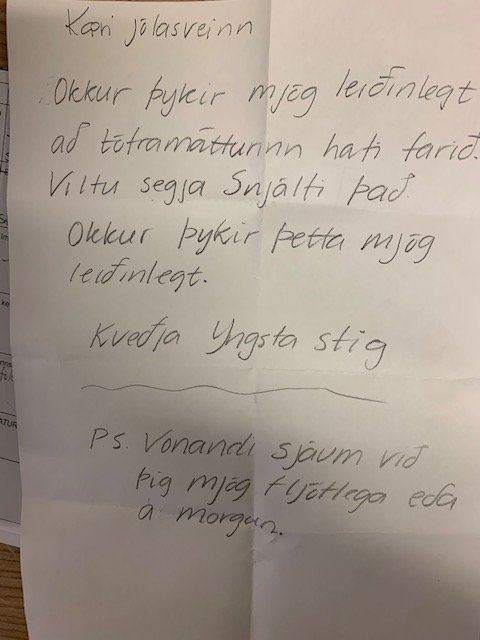 Kæri jólasveinn
Okkur þykir mjög leiðinlegt
að töframátturinn hafi farið.
Viltu segja Snjálfi það.
Okkur þykir þetta mjög
leiðinlegt.
Kveðja Yngsta stig
Ps. Vonandi sjáum við
þig mjög fljótlega eða
á morgun.